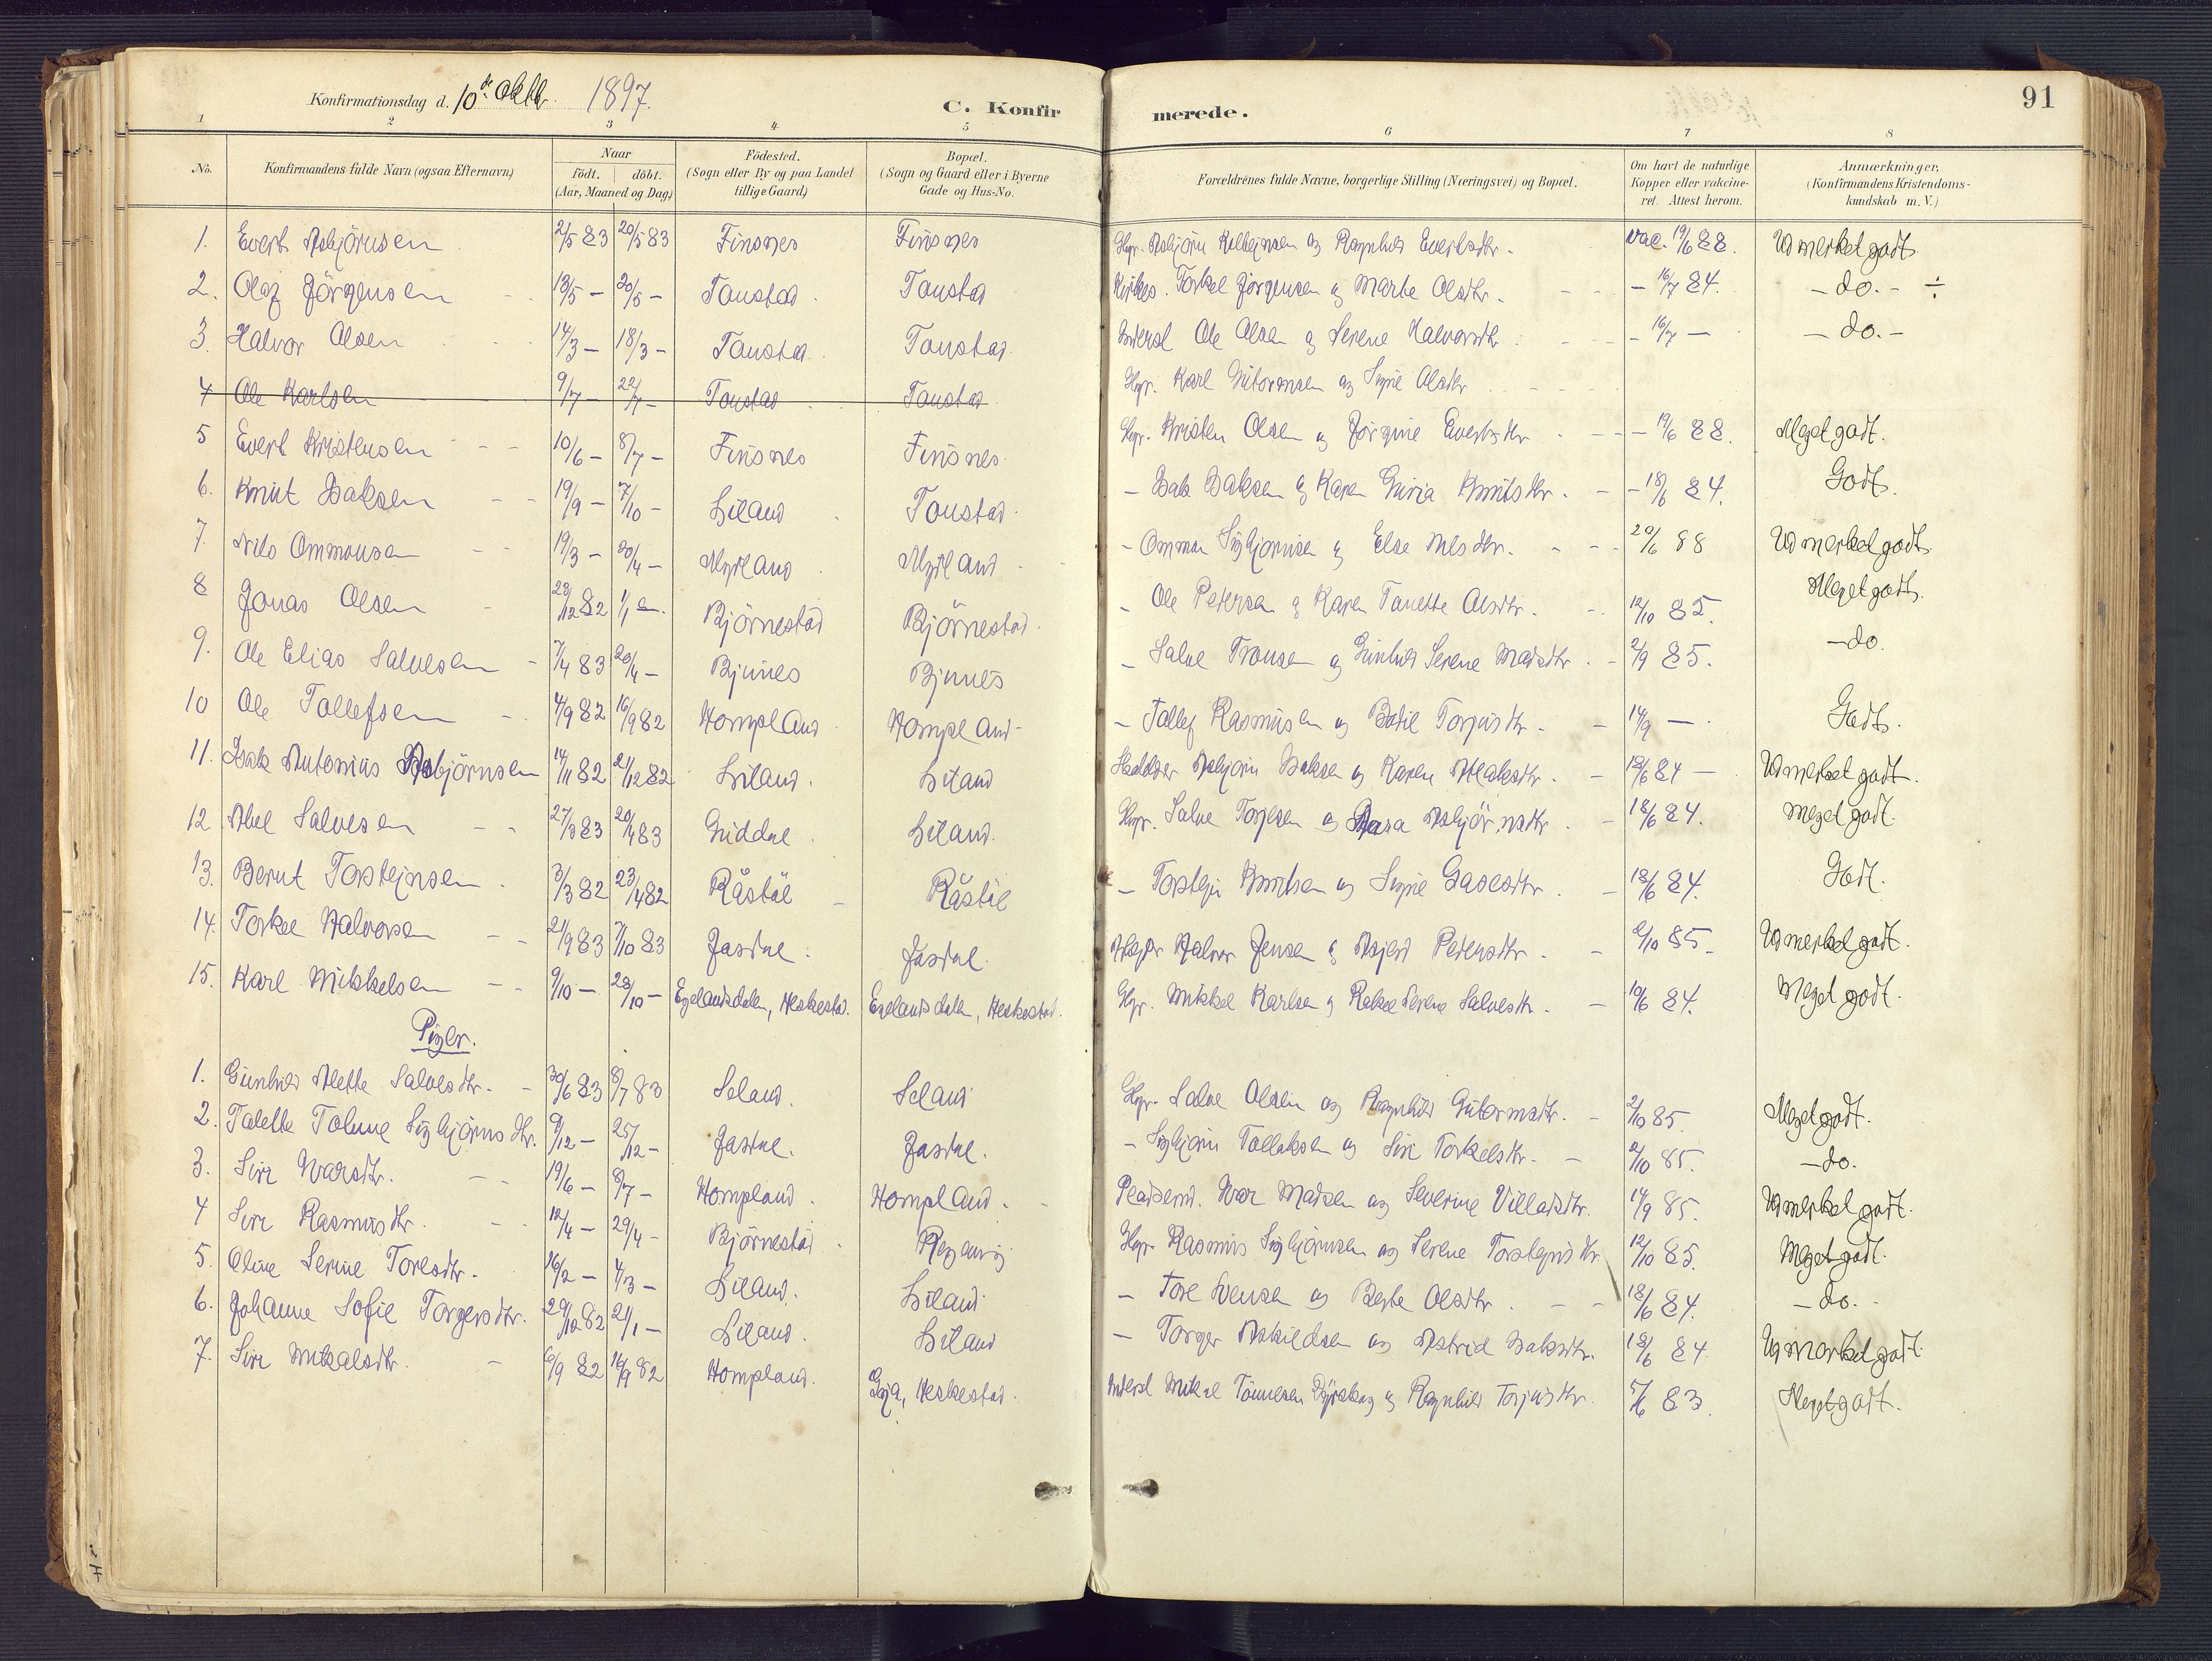 Konfirmationsdag d. 10de Oktbr. 1897.
C. Konfirmerede.
91
1 2 3 4 5 6 7 8
No. Konfirmandens fulde Navn (ogsaa Efternavn) Naar födt. döbt. (Aar, Maaned og Dag) Födested. (Sogn eller By og paa Landet tillige Gaard) Bopæl. (Sogn og Gaard eller i Byerne Gade og Hus-No. Forældrenes fulde Navne, borgerlige Stilling (Næringsvei) og Bopæl. Om havt de naturlige Kopper eller vakcineret. Attest herom. Anmærkninger, (Konfirmandens Kristendomskundskab m. V.)
1. Evert Asbjörnsen 2/5 83 20/5 83 Finsnes Finsnes Gbr. Asbjörn Kittejnsen og Ragnhild Evertsdtr. vac. 19/6 88. Udmerket godt
2. Olaf Jörgensen 13/5 - 20/5 - Tonstad. Tonstad Kirkes. Torkel Jörgensen og Marte Olsdtr. - 16/7 84. - do. - ÷
3. Halvor Olsen 14/3 - 18/3 - Tonstad. Tonstad. Inderst Ole Olsen og Serene Halvorsdtr. - 16/7 - - do. -
4 Ole Karlsen 9/7 - 22/7 - Tonstad Tonstad Gbr. Karl Gutormsen og Signe Olsdtr
5 Evert Kristensen 10/6 - 8/7 - Finsnes Finsnes Gbr. Kristen Olsen og Jörgine Evertsdtr - 19/6 88. Meget godt.
6. Knut Isaksen 19/9 - 7/10 - Liland Tonstad. - Isak Isaksen og Karen Guria Knutsdtr. - 18/6 84. Godt.
7. Nils Ommunsen 19/3 - 20/4 - Myrland Myrland - Ommun Sigbjörnsen og Else Nilsdtr. 20/6 88 Udmerket godt.
8 Jonas Olsen 23/12 82 1/1 Björnestad Björnestad. - Ole Petersen og Karen Tonette Olsdtr. 12/10 85. Meget godt.
9. Ole Elias Salvesen 7/4 83 20/4 - Bjunes Bjunes - Salve Tronsen og Gunhild Serene Madsdtr. 2/9 85. - do.
10 Ole Tollefsen 4/9 82 16/9 82 Hompland Hompland - Tollef Rasmusen og Bodil Torjusdtr. 14/9 - Godt.
11. Isak Antonius Asbjörnsen 14/11 82 21/12 82 Liland. Liland Asbjörn Isaksen og Karen Aslaksdtr. 18/6 84 - Udmerket godt.
12 Abel Salvesen 27/3 83 20/4 83 Guddal Liland. Gbr. Salve Torjesen og Sara Asbjörnsdtr. 18/6 84. Meget godt.
13. Bernt Torstejnsen. 3/3 82 23/4 82 Råstöl Råstöl - Torstejn Knutsen og Signe Gasesdtr. 18/6 84. Godt.
14. Torkel Halvorsen 21/9 83 7/10 83 Josdal. Josdal. Halvor Jensen og Asjerd Petersdtr. 2/10 85 - Udmerket godt.
15. Karl Mikkelsen 9/10 - 28/10 - Egelandsdalen, Heskestad. Egelandsdalen, Heskestad. Gbr. Mikkel Karlsen og Rakel Serene Salvesdtr. 19/6 84. Meget godt.
Piger.
1. Gunhild Alette Salvesdtr. 30/6 83 8/7 83 Seland. Seland Gbr. Salve Olsen og Ragnhild Gutormsdtr. 2/10 85. Meget godt.
2. Talette Toline Sigbjörnsdtr. 9/12 - 25/12 - Josdal. Josdal. - Sigbjörn Tollaksen og Siri Torkelsdtr. - 2/10 85. - do.
3. Siri Ivarsdtr. 19/6 - 8/7 - Hompland. Hompland. Pladsemd. Ivar Madsen og Severine Villadsdtr. 14/9 85. Udmerket godt.
4 Siri Rasmusdtr. 12/4 - 29/4 - Björnestad Gbr. Rasmus Sigbjörnsen og Serene Torstejnsdtr. 12/10 85. Meget godt.
5. Oline Serine Toresdtr. 16/2 - 4/3 - Liland. Liland. - Tore Svensen og Berte Olsdtr. 18/6 84. - do. -
6. Johanne Sofie Torgersdtr. 29/12 82 21/1 - Liland. Liland - Torger Askildsen og Astrid Isaksdtr. 18/6 84. Udmerket godt.
7. Siri Mikalsdtr. 6/9 82 16/9 82 Hompland. Heskestad. Inderst Mikal Tönnesen og Ragnhild Torjusdtr. 5/6 83. Meget godt.